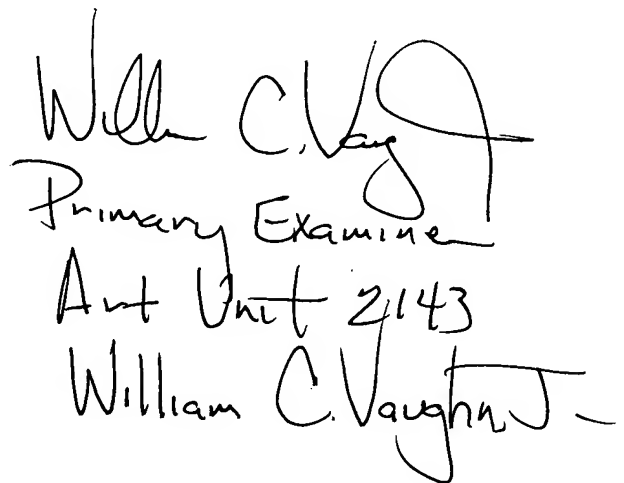 Willi C. Vaug
Primary Examiner
Art Unit 2143
William C. Vaughn, Jr.